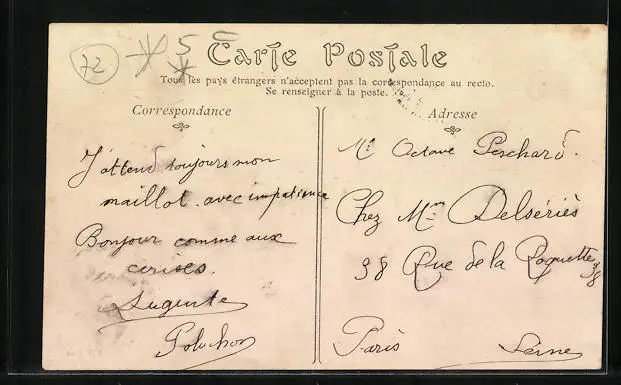 72
5
Carte Postale
Tous les pays étrangers n'acceptent pas la correspondance au recto.
Se renseigner à la poste.
Correspondance
J'attend toujours mon
maillot avec impatience
Bonjour comme aux
cerises.
Auguste
Poluchon
Adresse
Mr Octave Peschard.
Chez Mme Delsériès
98 Rue de la Roquette 98
Paris
Seine